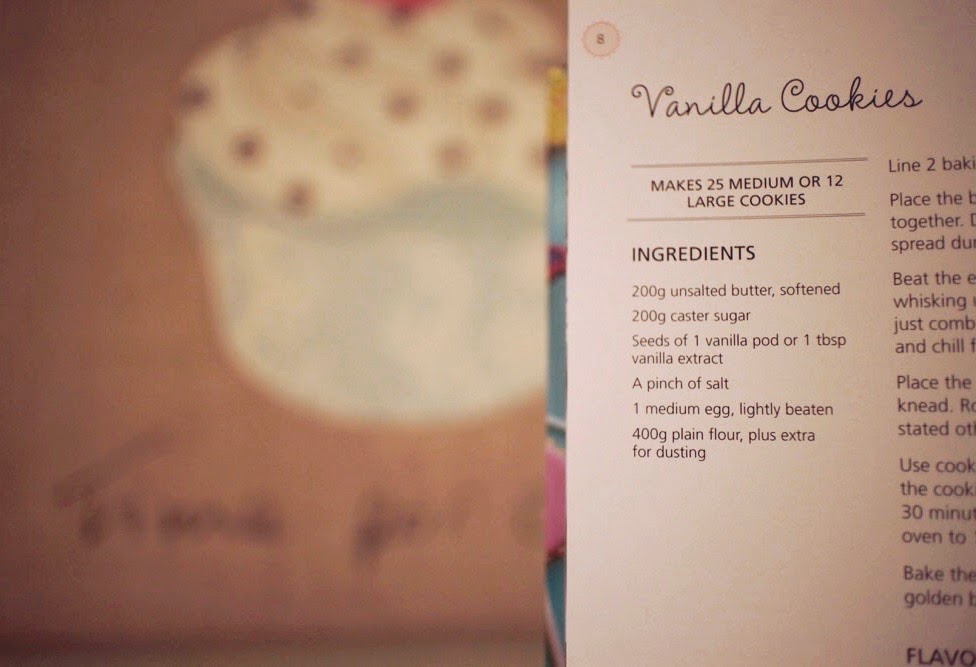 8
Vanilla Cookies
MAKES 25 MEDIUM OR 12
LARGE COOKIES
INGREDIENTS
200g unsalted butter, softened
200g caster sugar
Seeds of 1 vanilla pod or 1 tbsp
vanilla extract
A pinch of salt
1 medium egg, lightly beaten
400g plain flour, plus extra
for dusting
Line 2 baki
Place the b
together. D
spread dur
Beat the e
whisking u
just comb
and chill f
Place the
knead. Ro
stated oth
Use cook
the cooki
30 minut
oven to
Bake the
golden b
FLAVO
Time for